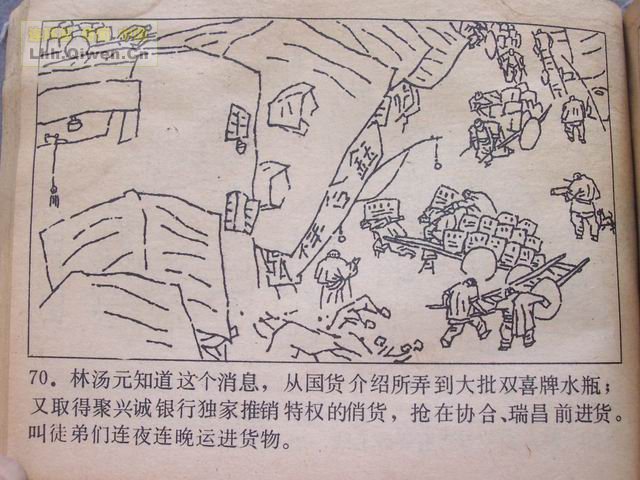 Lhh.Qiwen.Cn
70. 林汤元知道这个消息，从国货介绍所弄到大批双喜牌水瓶；
又取得聚兴诚银行独家推销特权的俏货，抢在协合、瑞昌前进货。
叫徒弟们连夜连晚运进货物。